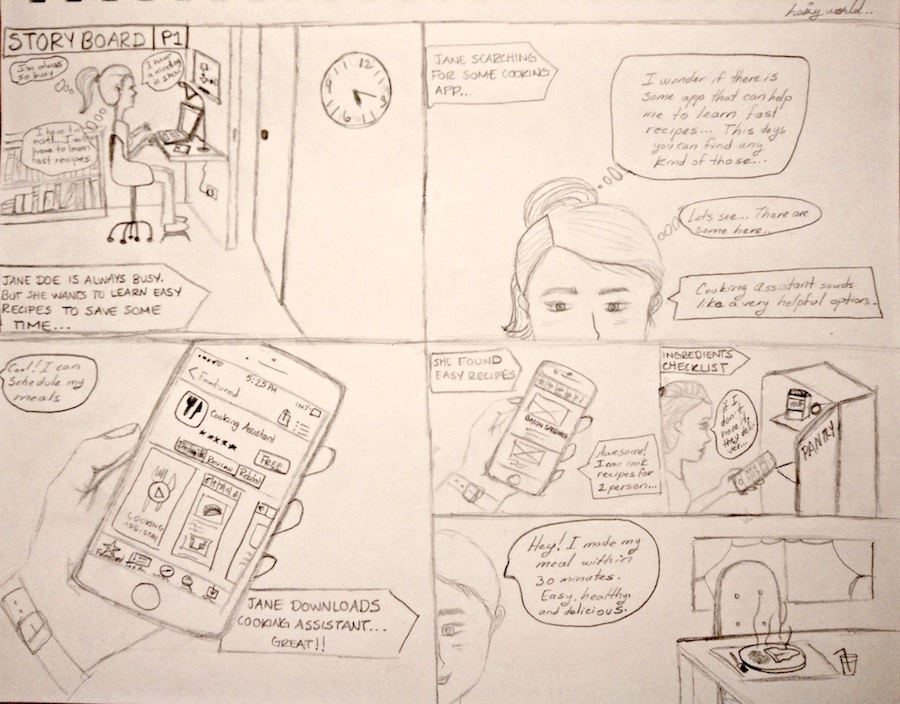 hairy world..
STORY BOARD P1
I'm always
so busy
I have
a meeting
at
I have to
eat.. I
have to learn
fast recipes
12
3
6
9
JANE DOE IS ALWAYS BUSY.
BUT SHE WANTS TO LEARN EASY
RECIPES TO SAVE SOME
TIME...
JANE SEARCHING
FOR SOME COOKING
APP...
I wonder if there is
some app that can help
me to learn fast
recipes... This days
you can find any
kind of those...
Lets see... There are
some here..
Cooking Assistant sounds
like a very helpful option..
Cool! I can
Schedule my
meals
5:25 PM
< Featured
Cooking Assistant
★★★★★
FREE
Details Review Related
COOKING
ASSISTAN
Featured
JANE DOWNLOADS
COOKING ASSISTANT...
GREAT!!
SHE FOUND
EASY RECIPES
BACON SANDWICH
Awesome!
I can cook
recipes for
1 person...
INGREDIENTS
CHECKLIST
if I
don't
have it,
they deli
ver...
PANTRY
Hey! I made my
meal within
30 minutes.
Easy, healthy,
and delicious.